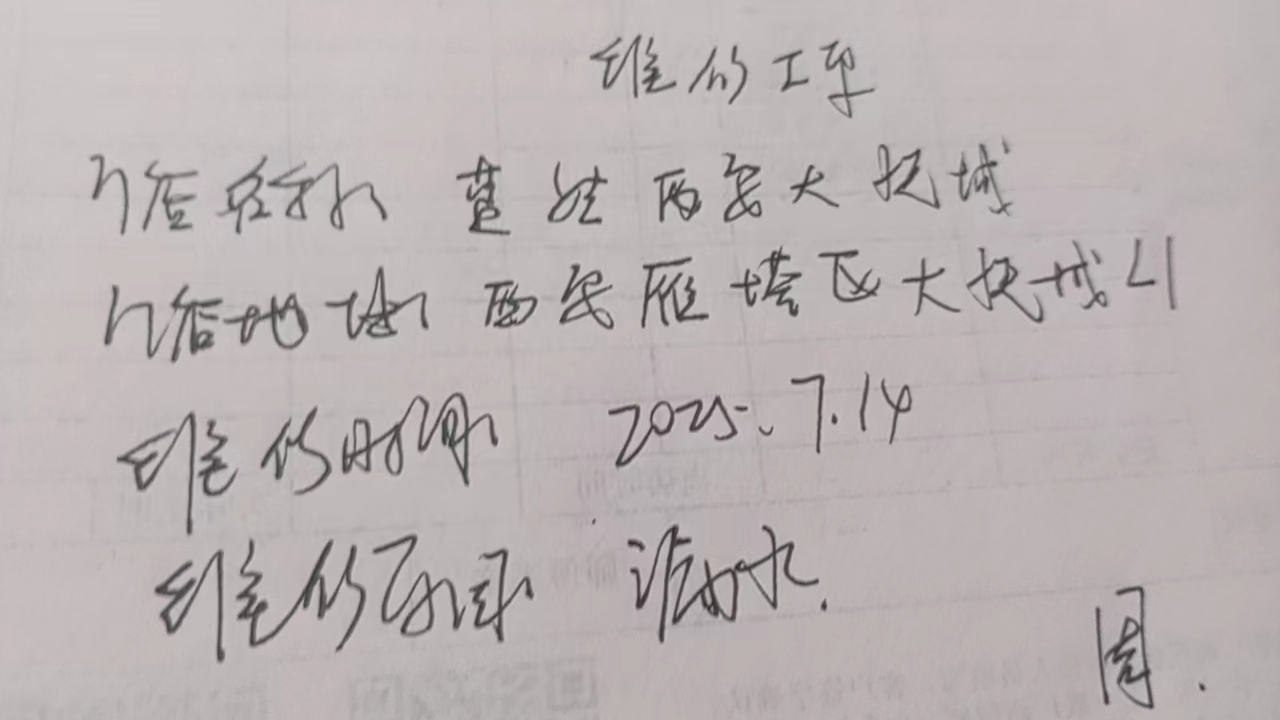 维修工单
门店名称 楚然西安大悦城
门店地址 西安雁塔区大悦城L1
维修时间 2025.7.14
维修项目 漏水.
周.